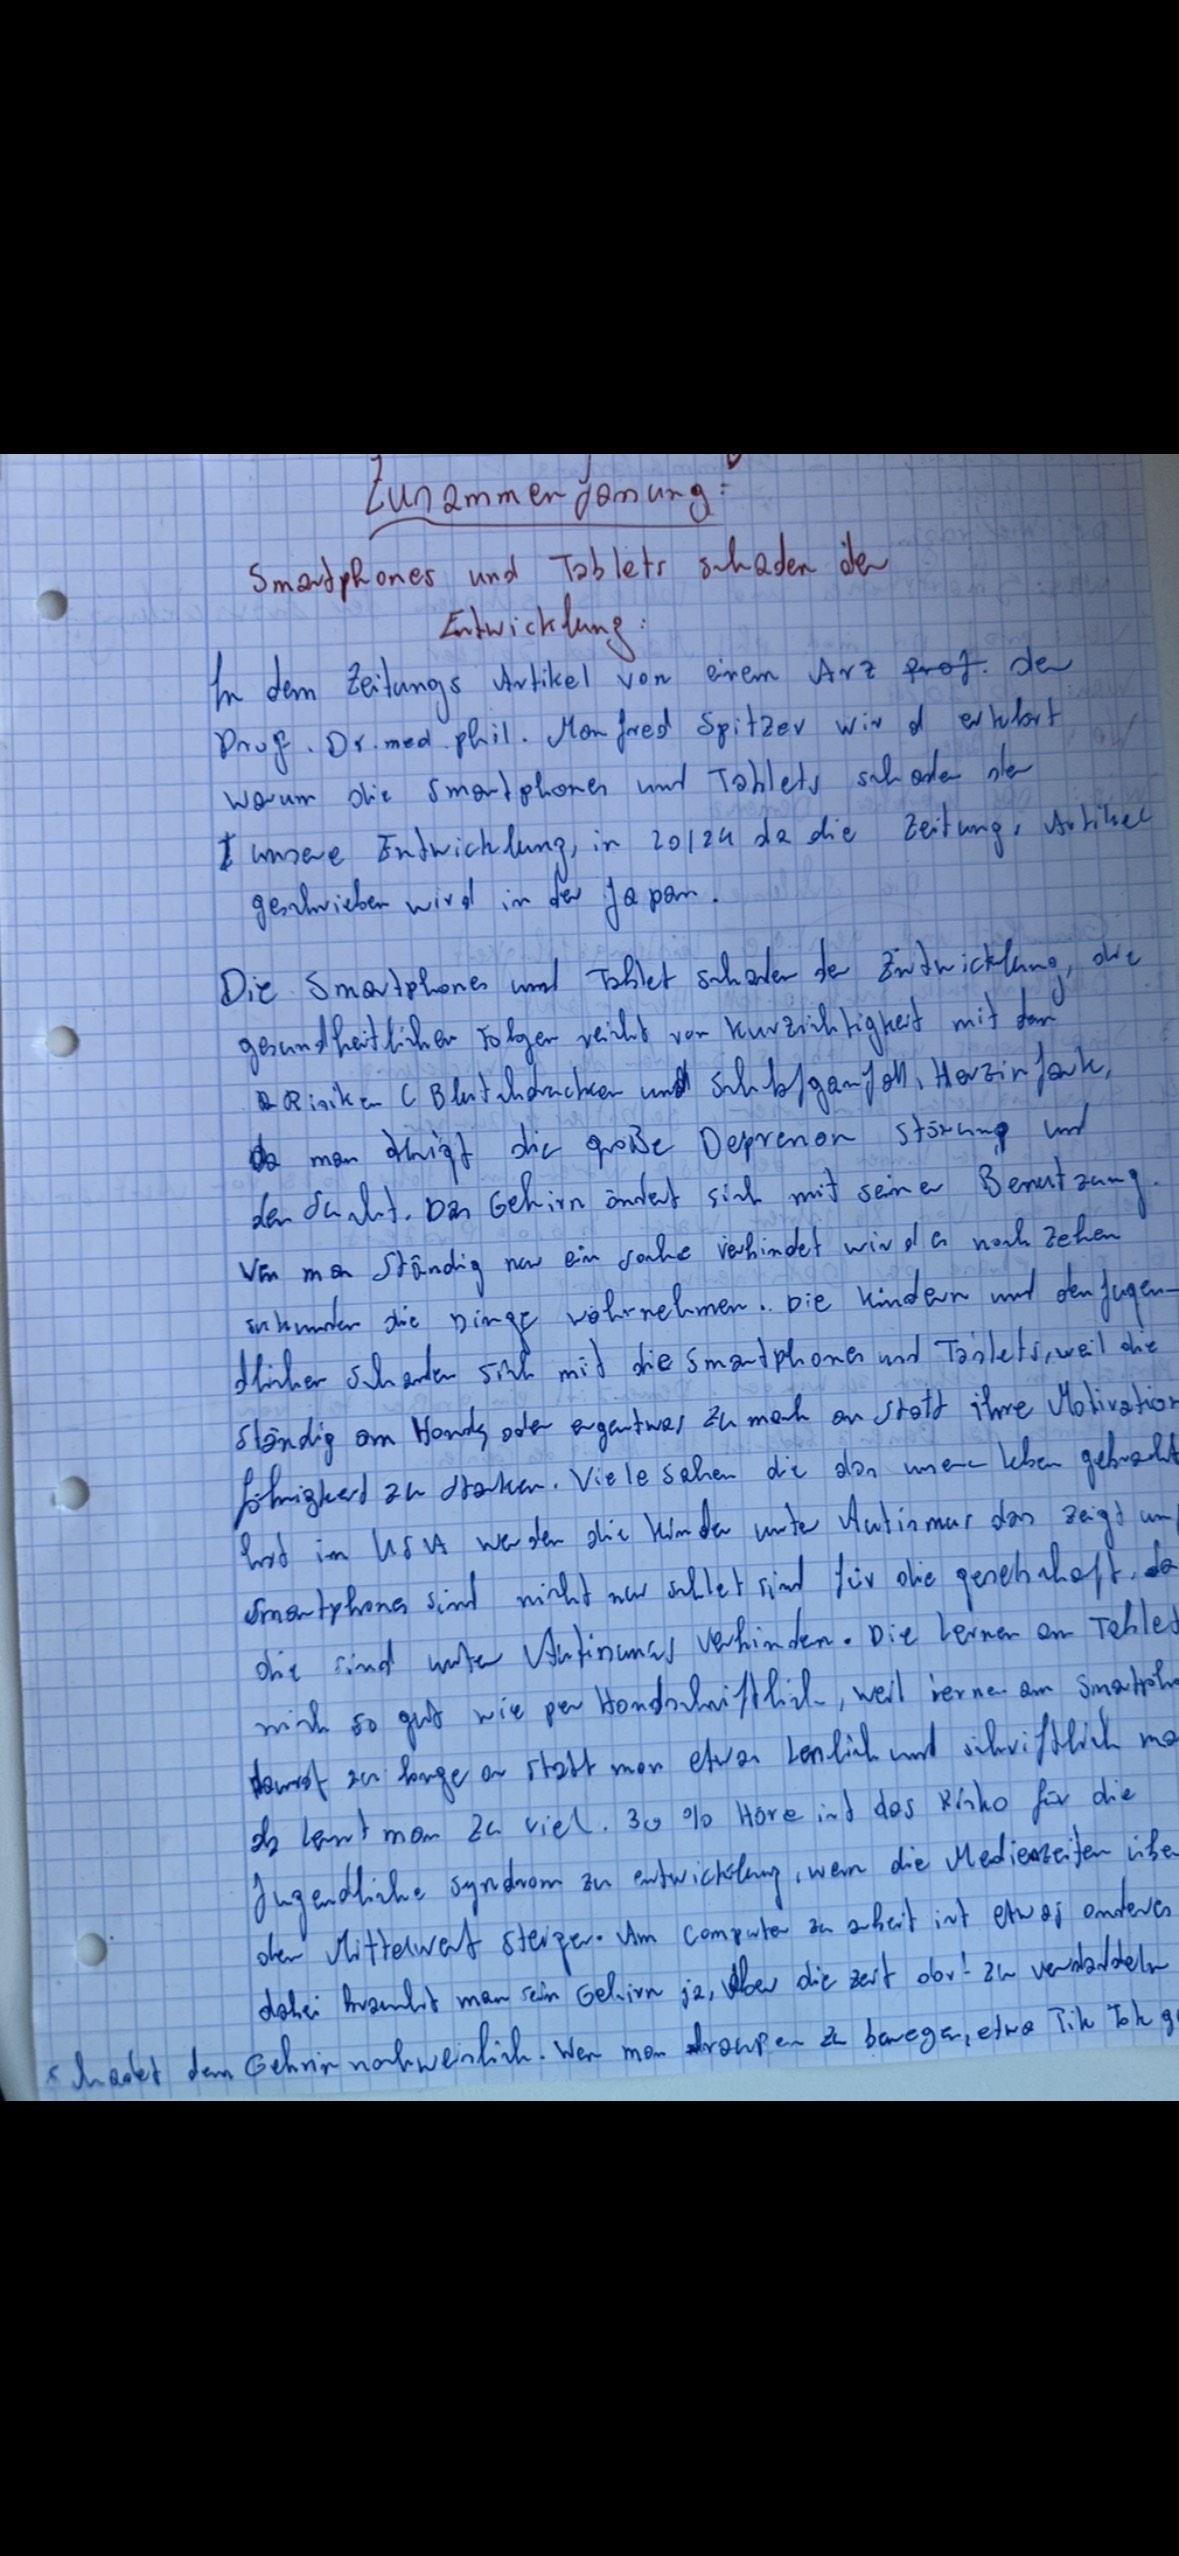 Zusammenfassung:
Smartphones und Tablets schaden der
Entwicklung:
In dem Zeitungs Artikel von einem Arz prof. der
Prof. Dr. med. phil. Manfred Spitzer wird erklärt
warum die Smartphones und Tablets schaden der
unsere Entwicklung, in 20/24 da die Zeitung, Artikel
geschrieben wird in der Japan.
Die Smartphones und Tablet schaden der Entwicklung, die
gesundheitlichen Folgen reicht von Kurzichtigkeit mit den
Risiken und Herzinfark,
man die große Depresson störung und
der Sucht. Das Gehirn ändert sich mit seiner Benutzung.
man ständig nur ein sache verhindet wird nach zehen
sekunden die Dinge wahrnehmen. Die Kindern und den Jugen-
dlicher schaden sich mit die Smartphones und Tablets, weil die
ständig am Handy oder zu mach an statt ihre Motivation
fähigkeit zu starken. Viele sahen die das unsere leben gebracht
hat im USA werden die Kinder unter Autismus das zeigt
Smartphones sind nicht nur schlet sind für die geselschaft, da
die sind unter Autismus verhinden. Die lernen am Tablet
nich so gut wie per Handschriftlich, weil lerne am
zu lange an statt man etwas und schriftlich
lernt man zu viel. 30 % Höre ist das Risko für die
Jugendliche syndrom zu entwicklung, wenn die Medienzeiten
den Mittelwert steigen. Am Computer zu arbeit ist etwas anderes
dabei braucht man sein Gehirn ja, Aber die zeit dort zu verdaddeln
schadet dem Gehrin nachweislich. Wen man draußen zu bewegen, etwa Tik Tok